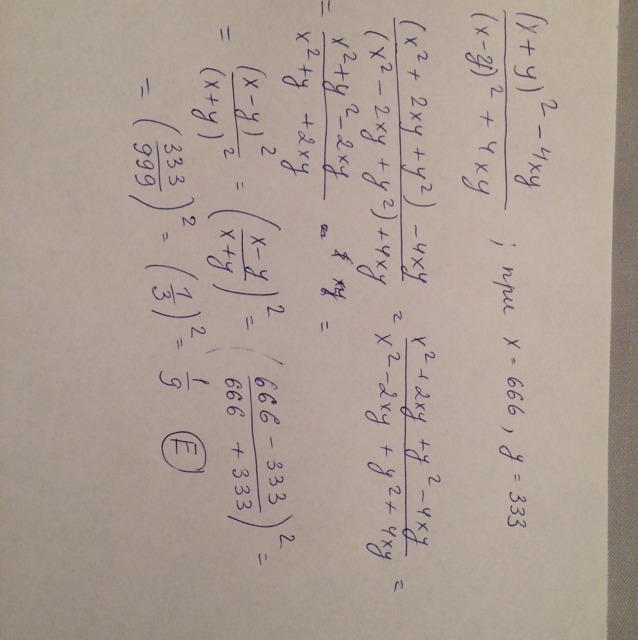 (x+y)² - 4xy / (x-y)² + 4xy ; при x = 666, y = 333
(x² + 2xy + y²) - 4xy / (x² - 2xy + y²) + 4xy = x² + 2xy + y² - 4xy / x² - 2xy + y² + 4xy =
= x² + y² - 2xy / x² + y + 2xy xy =
= (x-y)² / (x+y)² = (x-y / x+y)² = (666 - 333 / 666 + 333)² =
= (333 / 999)² = (1/3)² = 1/9 E